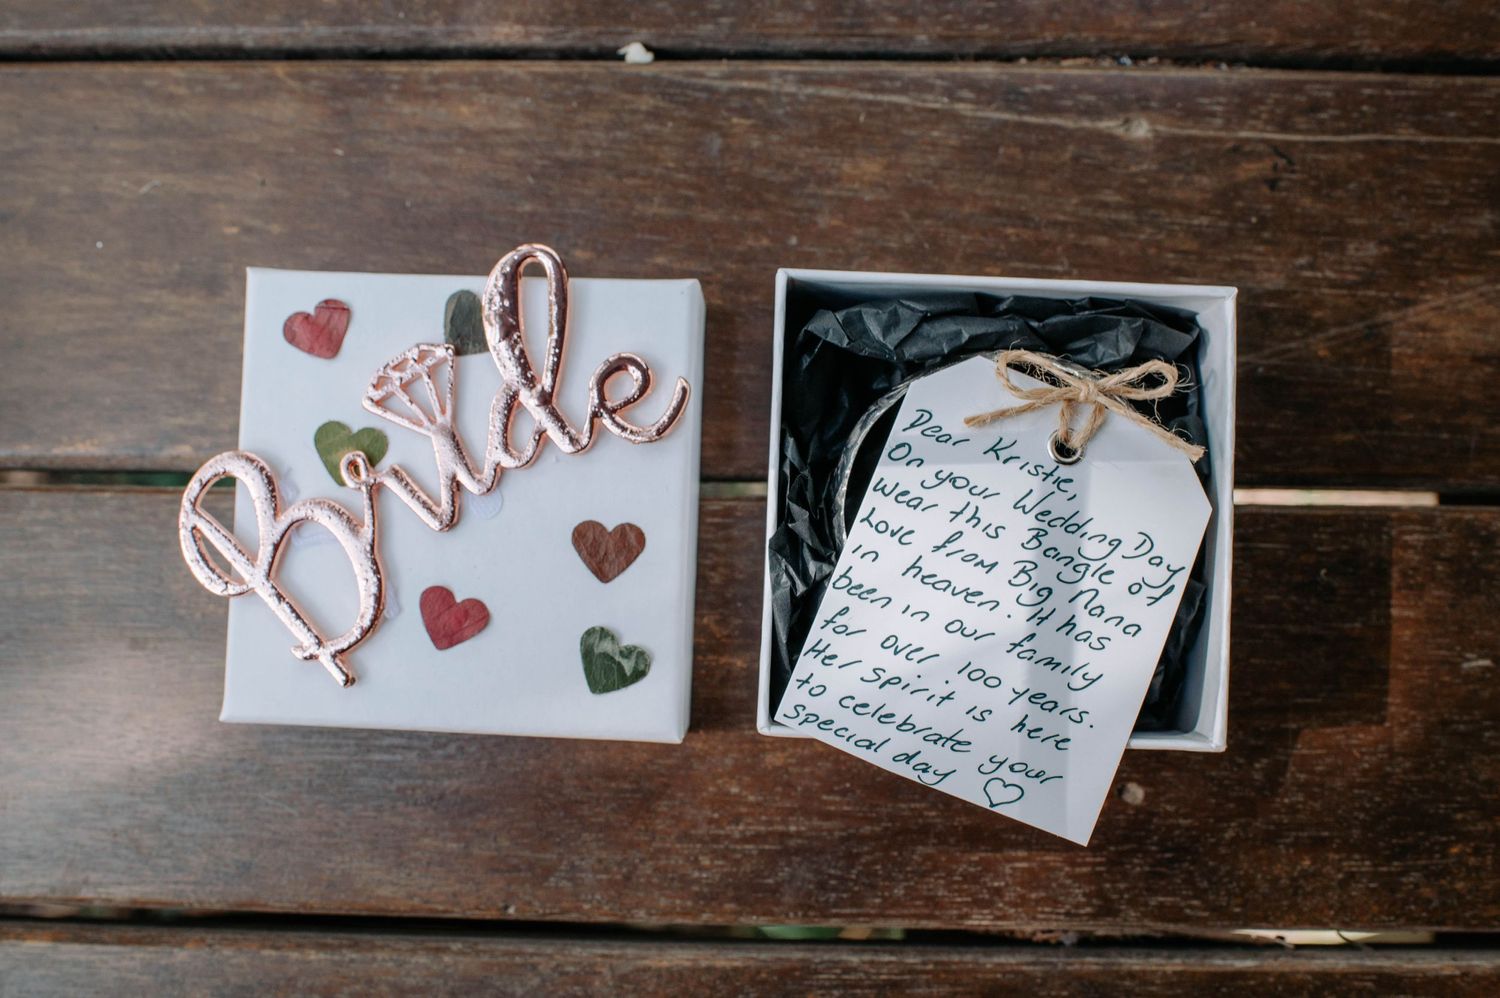 Bride
Dear Kristie,
On your Wedding Day
wear this Bangle of
Love from Big Nana
in heaven. It has
been in our family
for over 100 years.
Her spirit is here
to celebrate your
special day ♡